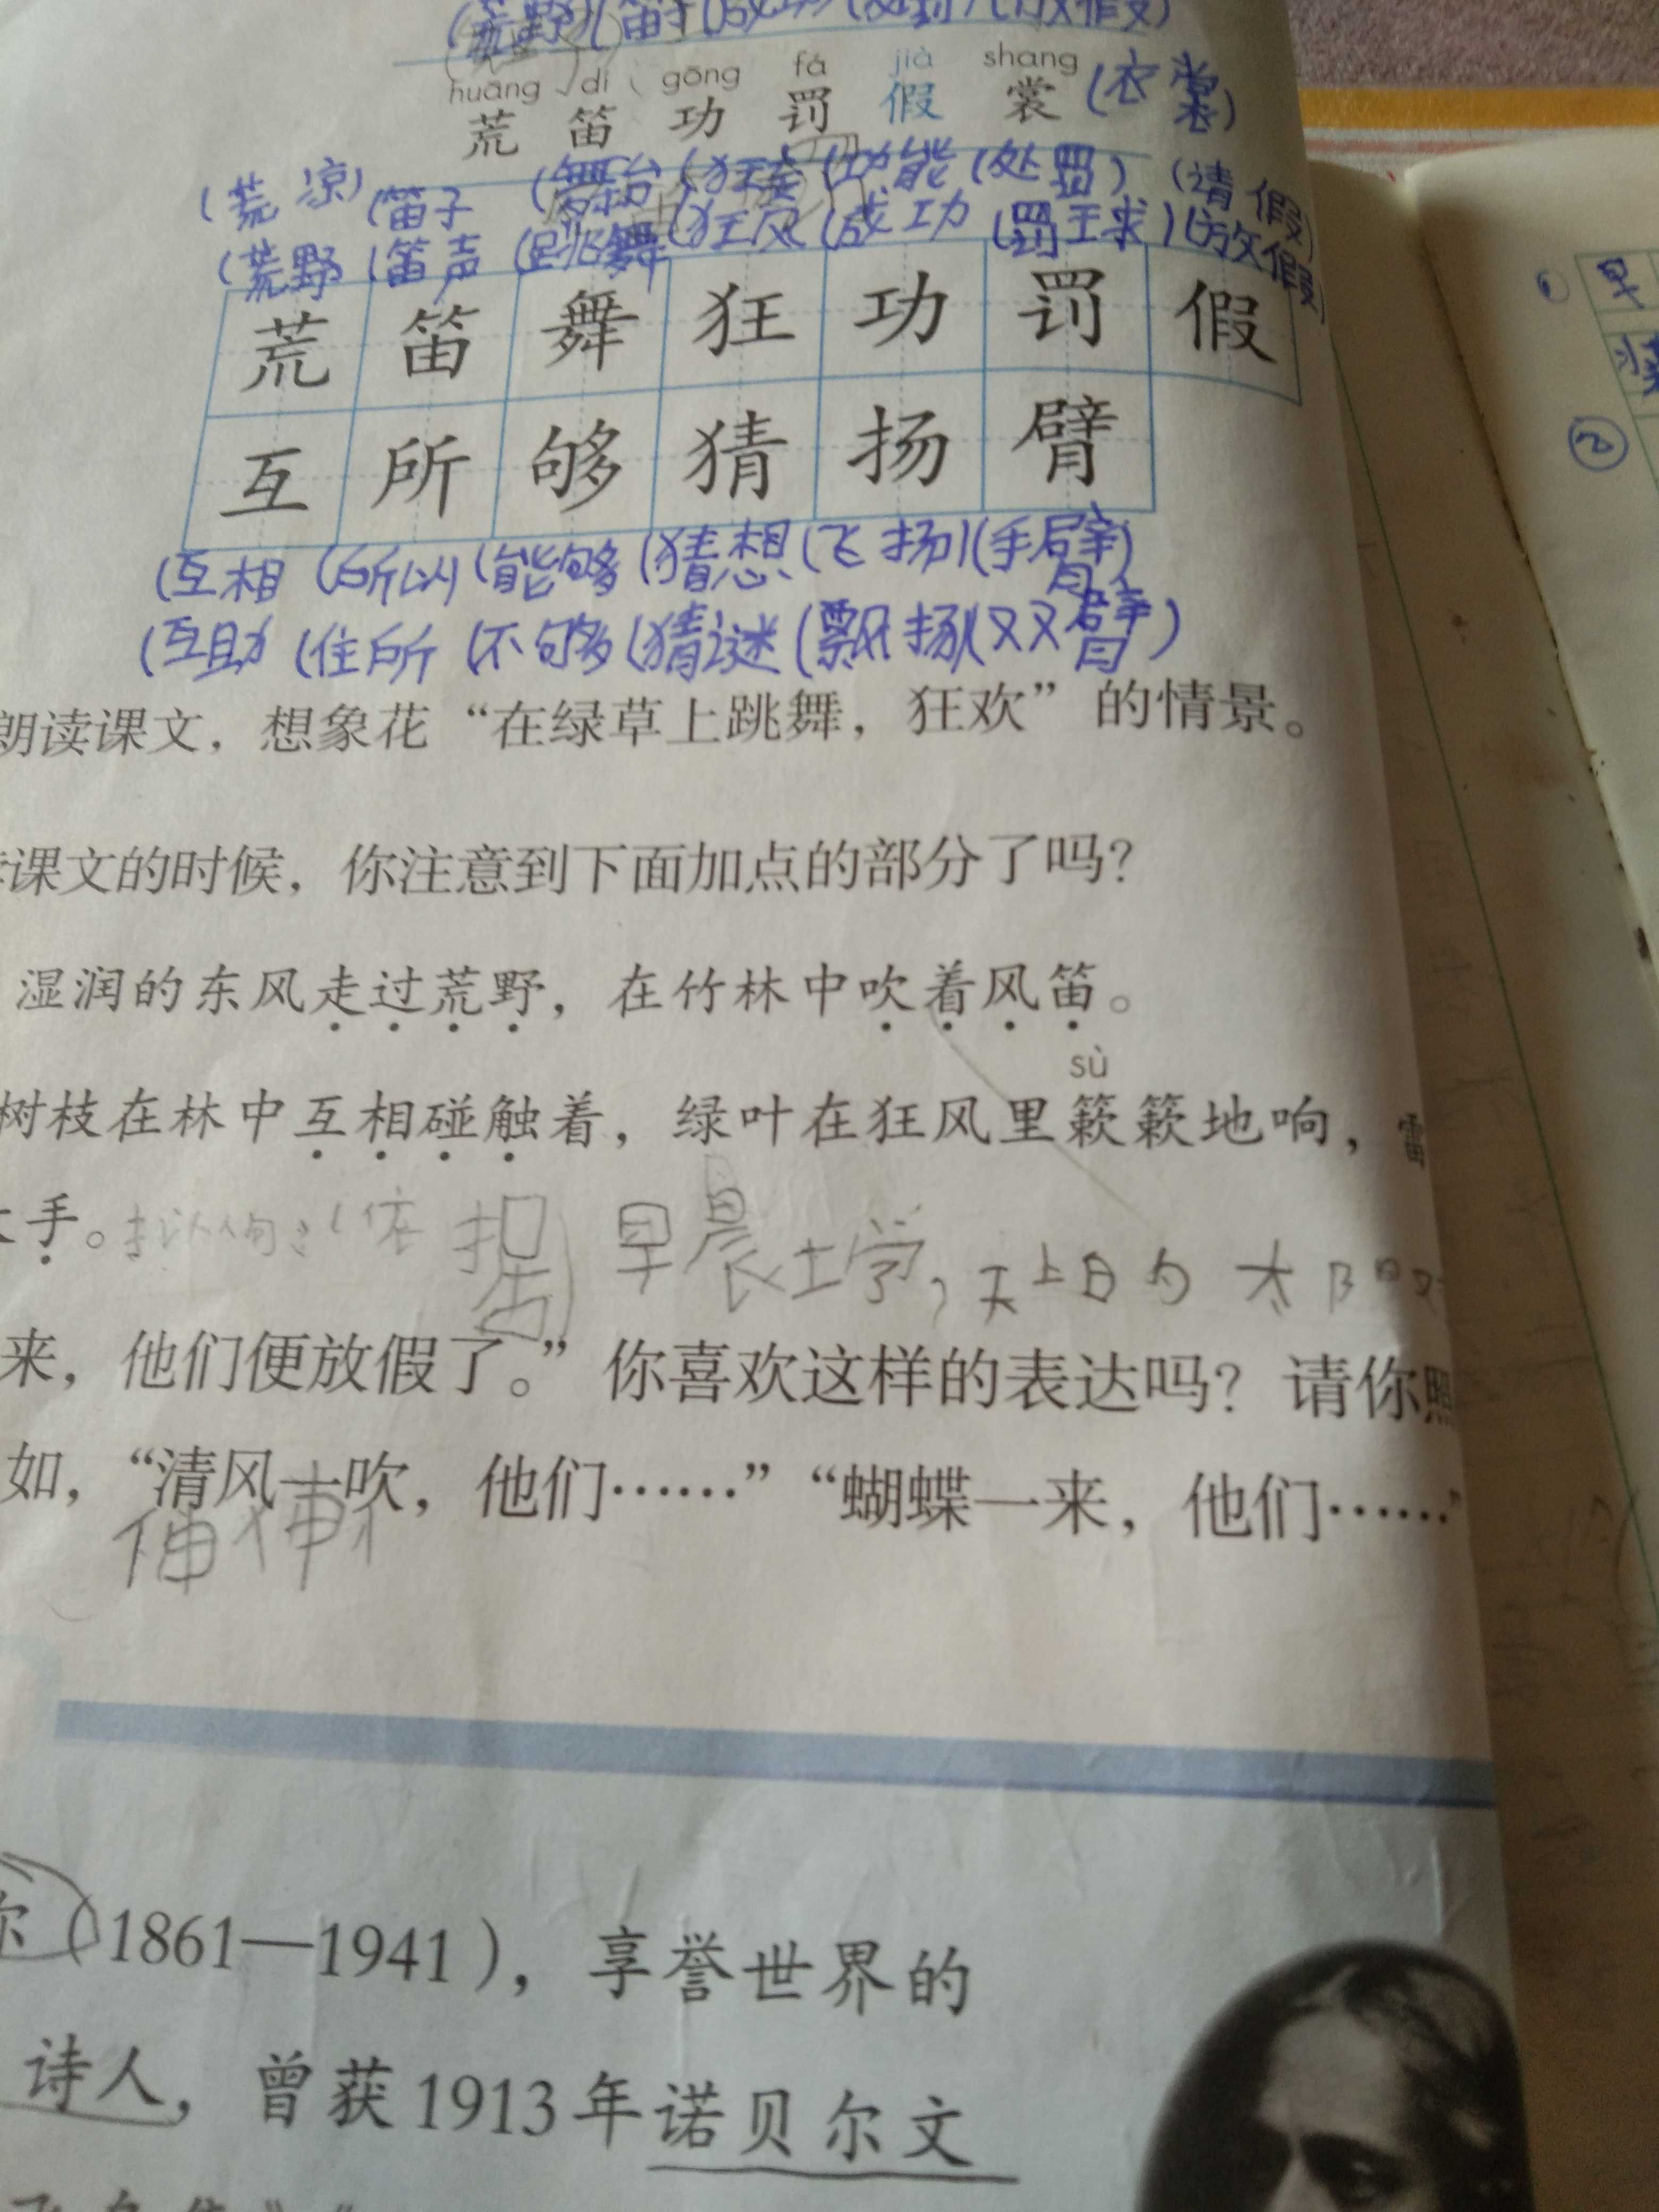 (荒野)(笛子)(成功)(处罚)(放假)
huāng dí gōng fá jià shang
荒 笛 功 罚 假 裳 (衣裳)
(荒凉)(笛子 (舞台 (功能 (处罚) (请假)
(荒野 (笛声 (跳舞 (狂风 (成功 (罚球)(放假)
荒 笛 舞 狂 功 罚 假
互 所 够 猜 扬 臂
(互相 (所以 (能够 (猜想 (飞扬)(手臂)
(互助 (住所 (不够 (猜谜 (飘扬(双臂)
朗读课文，想象花“在绿草上跳舞，狂欢”的情景。
课文的时候，你注意到下面加点的部分了吗？
湿润的东风走过荒野，在竹林中吹着风笛。
sù
树枝在林中互相碰触着，绿叶在狂风里簌簌地响，雷
大手。 早晨上学，天上的太阳对
来，他们便放假了。”你喜欢这样的表达吗？请你照
如，“清风一吹，他们……”“蝴蝶一来，他们……”
尔（1861—1941），享誉世界的
诗人，曾获1913年诺贝尔文